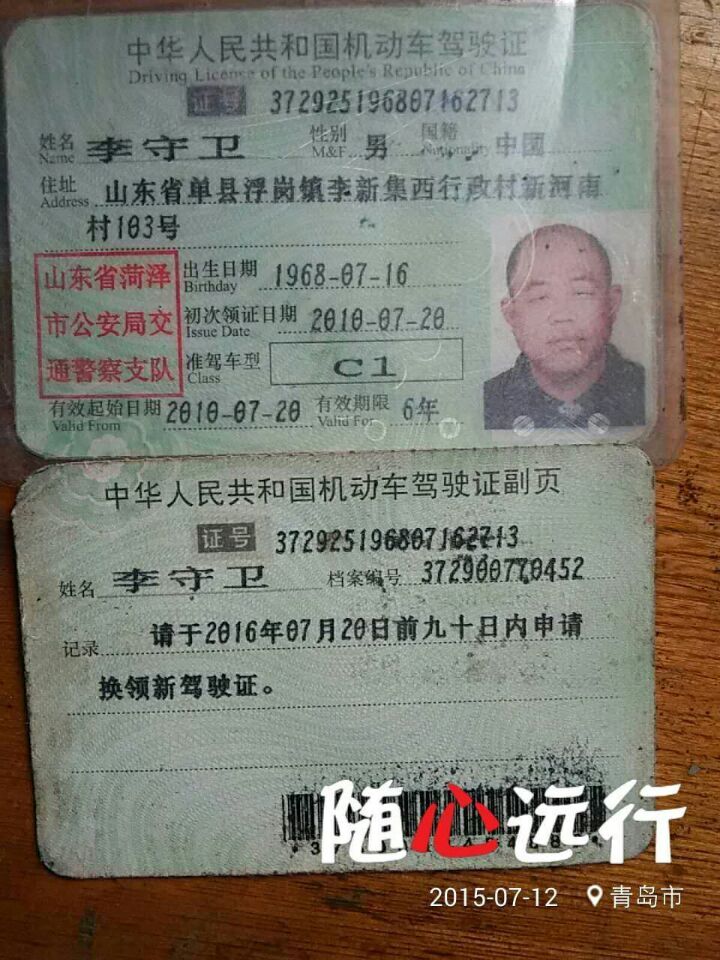 中华人民共和国机动车驾驶证
Driving License of the People's Republic of China
证号 372925196807162713
姓名 Name 李守卫 性别 M&F 男 国籍 Nationality 中国
住址 Address 山东省单县浮岗镇李新集西行政村新河南
村103号
山东省菏泽
市公安局交
通警察支队
出生日期 Birthday 1968-07-16
初次领证日期 Issue Date 2010-07-20
准驾车型 Class C1
有效起始日期 Valid From 2010-07-20 有效期限 Valid For 6年
中华人民共和国机动车驾驶证副页
证号 372925196807162713
姓名 李守卫 档案编号 372900770452
记录 请于2016年07月20日前九十日内申请
换领新驾驶证。
随心远行
2015-07-12 青岛市